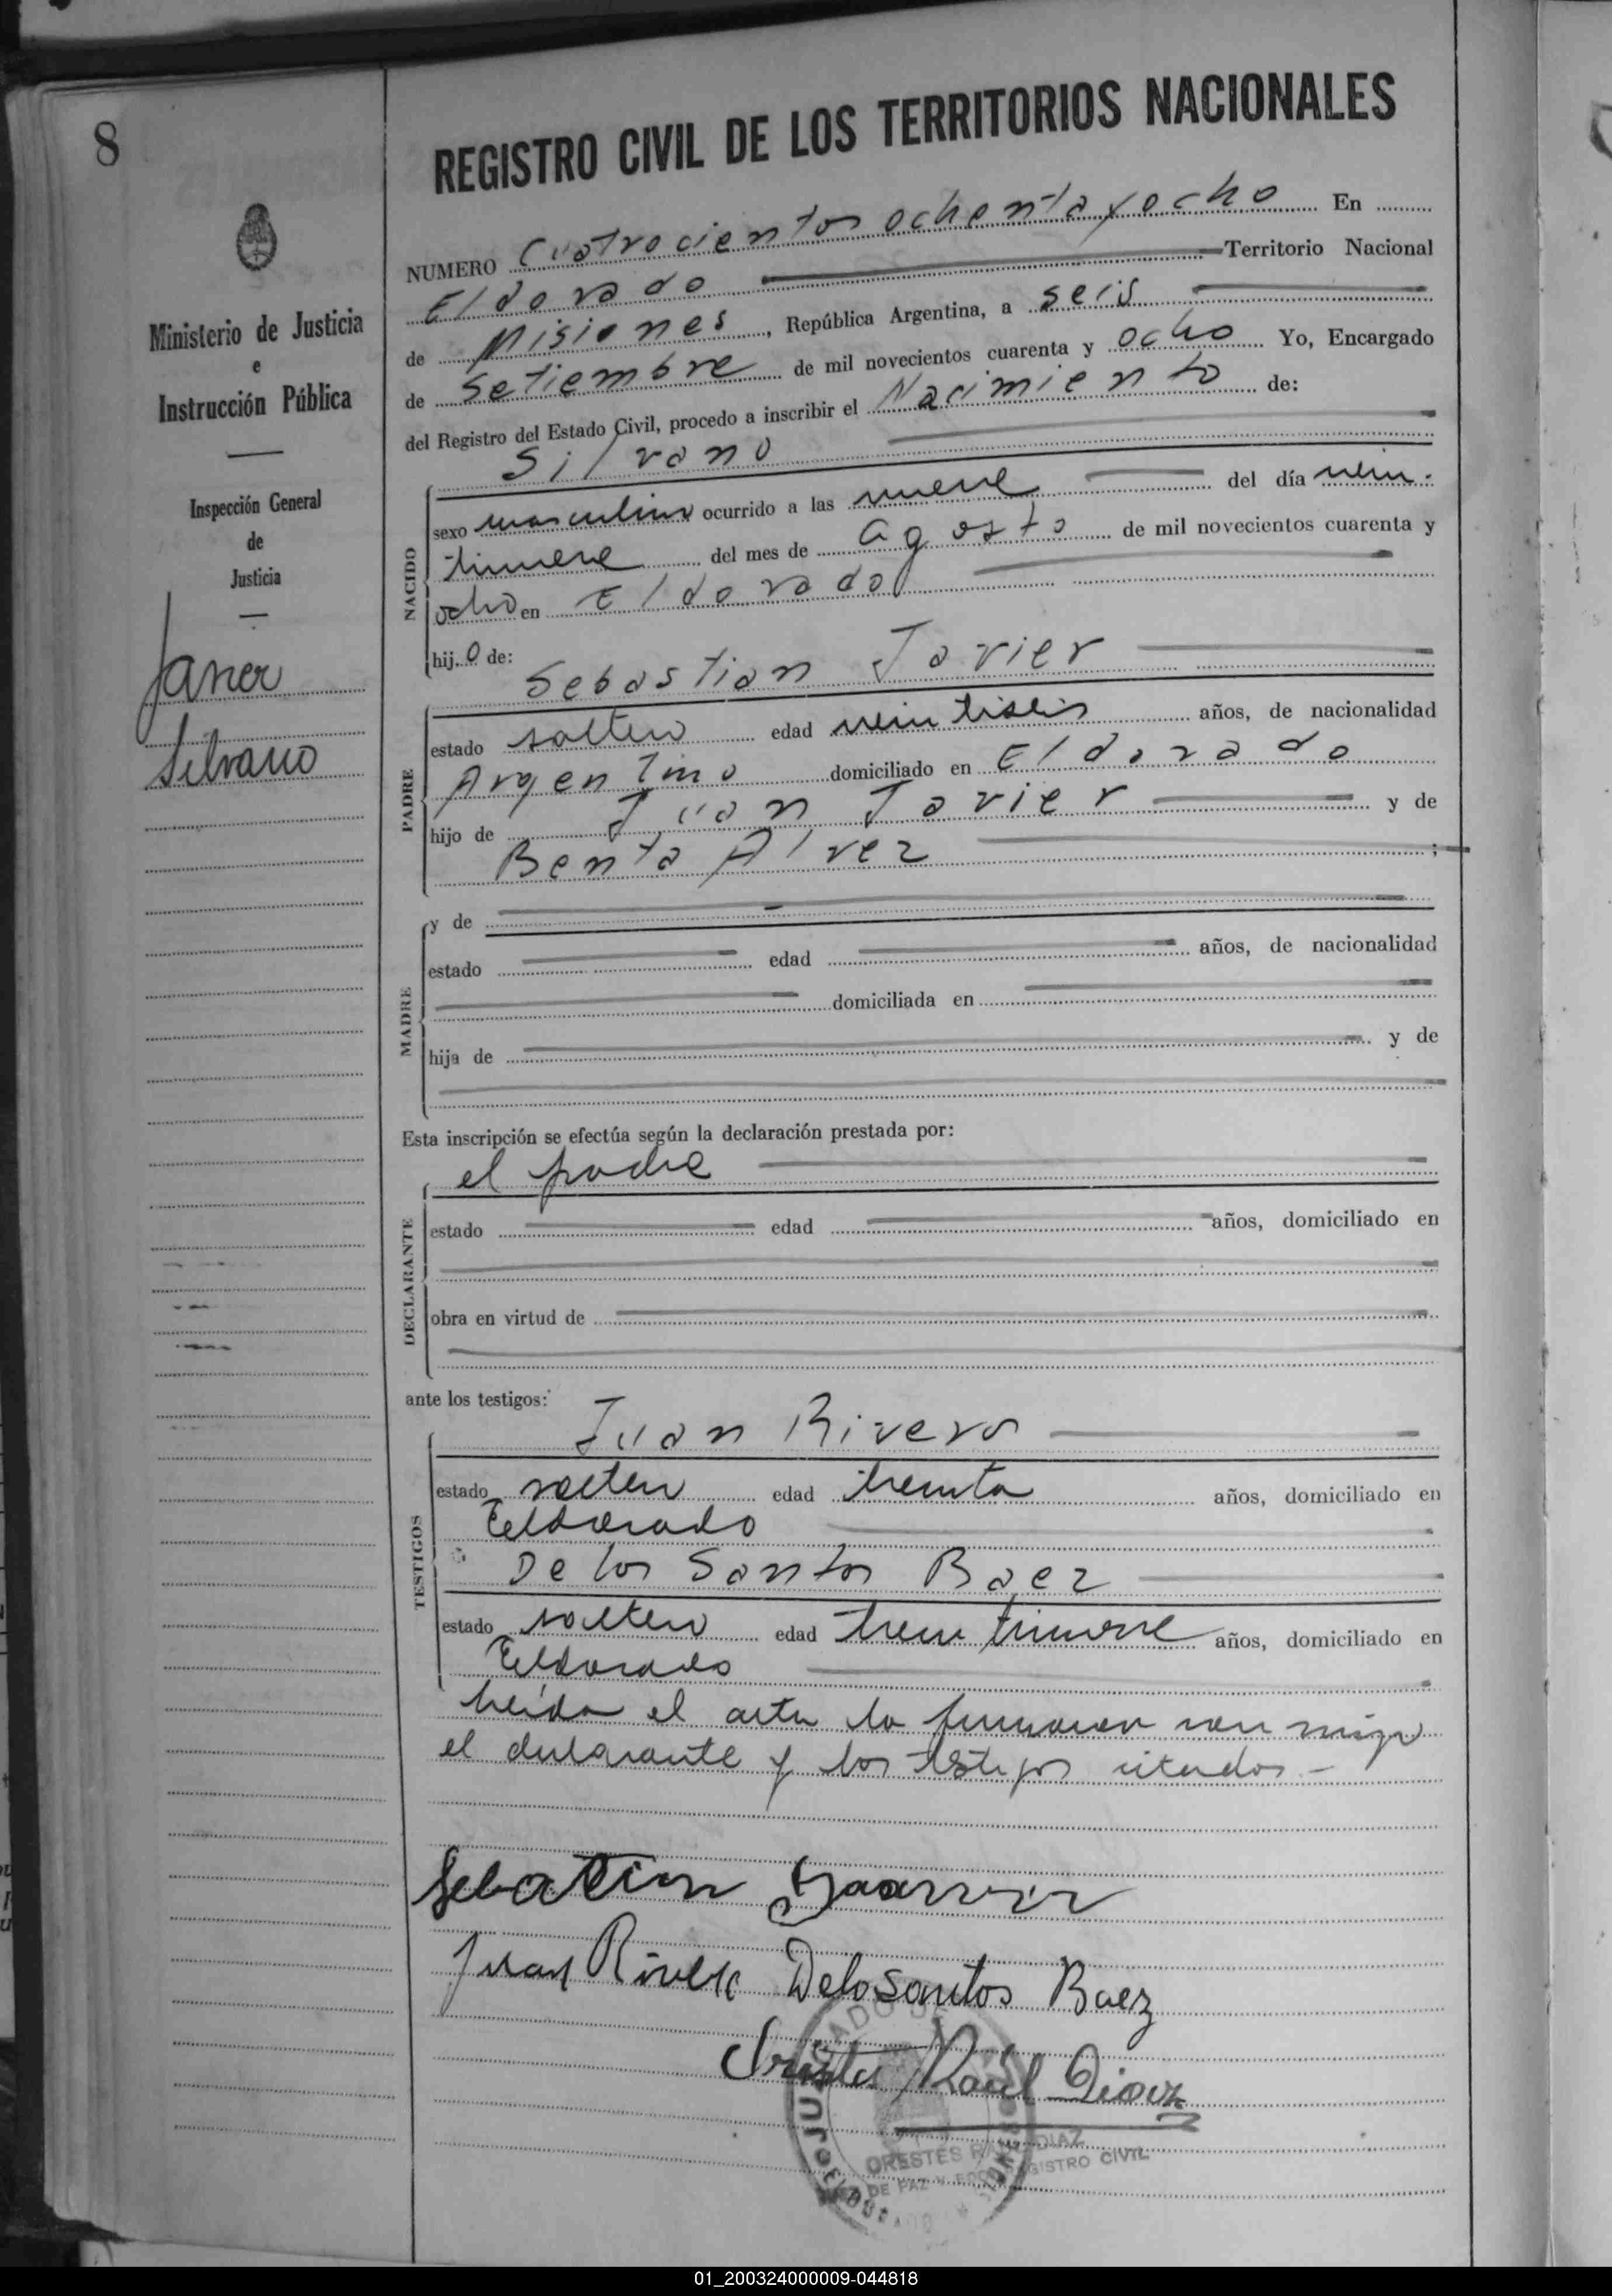 8
REGISTRO CIVIL DE LOS TERRITORIOS NACIONALES
Ministerio de Justicia
e
Instrucción Pública
Inspección General
de
Justicia
Javier
Silvano
NUMERO Cuatrocientos ochenta y ocho En
Eldorado Territorio Nacional
de Misiones, República Argentina, a seis
de Setiembre de mil novecientos cuarenta y ocho Yo, Encargado
del Registro del Estado Civil, procedo a inscribir el Nacimiento de:
Silvano
NACIDO
sexo masculino ocurrido a las nueve del día vein-
tinueve del mes de agosto de mil novecientos cuarenta y
ocho en Eldorado
hijo de:
Sebastian Javier
PADRE
estado soltero edad veintiseis años, de nacionalidad
Argentino domiciliado en Eldorado
hijo de Juan Javier y de
Benta Alvez ;
MADRE
y de
estado edad años, de nacionalidad
domiciliada en
hija de y de
Esta inscripción se efectúa según la declaración prestada por:
el padre
DECLARANTE
estado edad años, domiciliado en
obra en virtud de
ante los testigos:
Juan Rivero
TESTIGOS
estado soltero edad treinta años, domiciliado en
Eldorado
De los Santos Baez
estado soltero edad treintinueve años, domiciliado en
Eldorado
Leída el acta la firmaron con migo
el declarante y los testigos citados -
Juan Rivero Delosantos Baez
Orestes Raúl Diaz
ORESTES RAUL DIAZ
JUEZ DE PAZ Y ENC. REGISTRO CIVIL
01_200324000009-044818